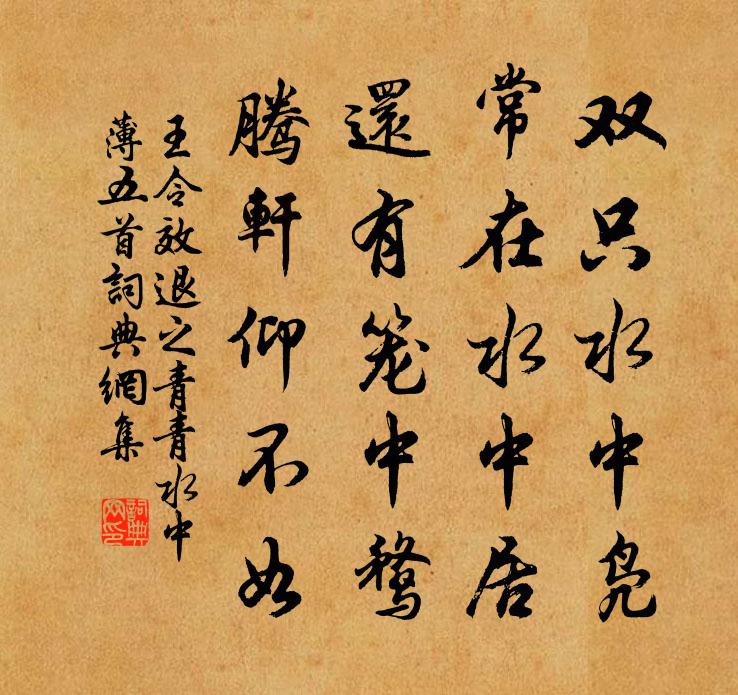 双只水中凫
常在水中居
還有笼中鹜
腾軒仰不如
王令效退之青青水中
薄五首詞典網集
詞典
网印